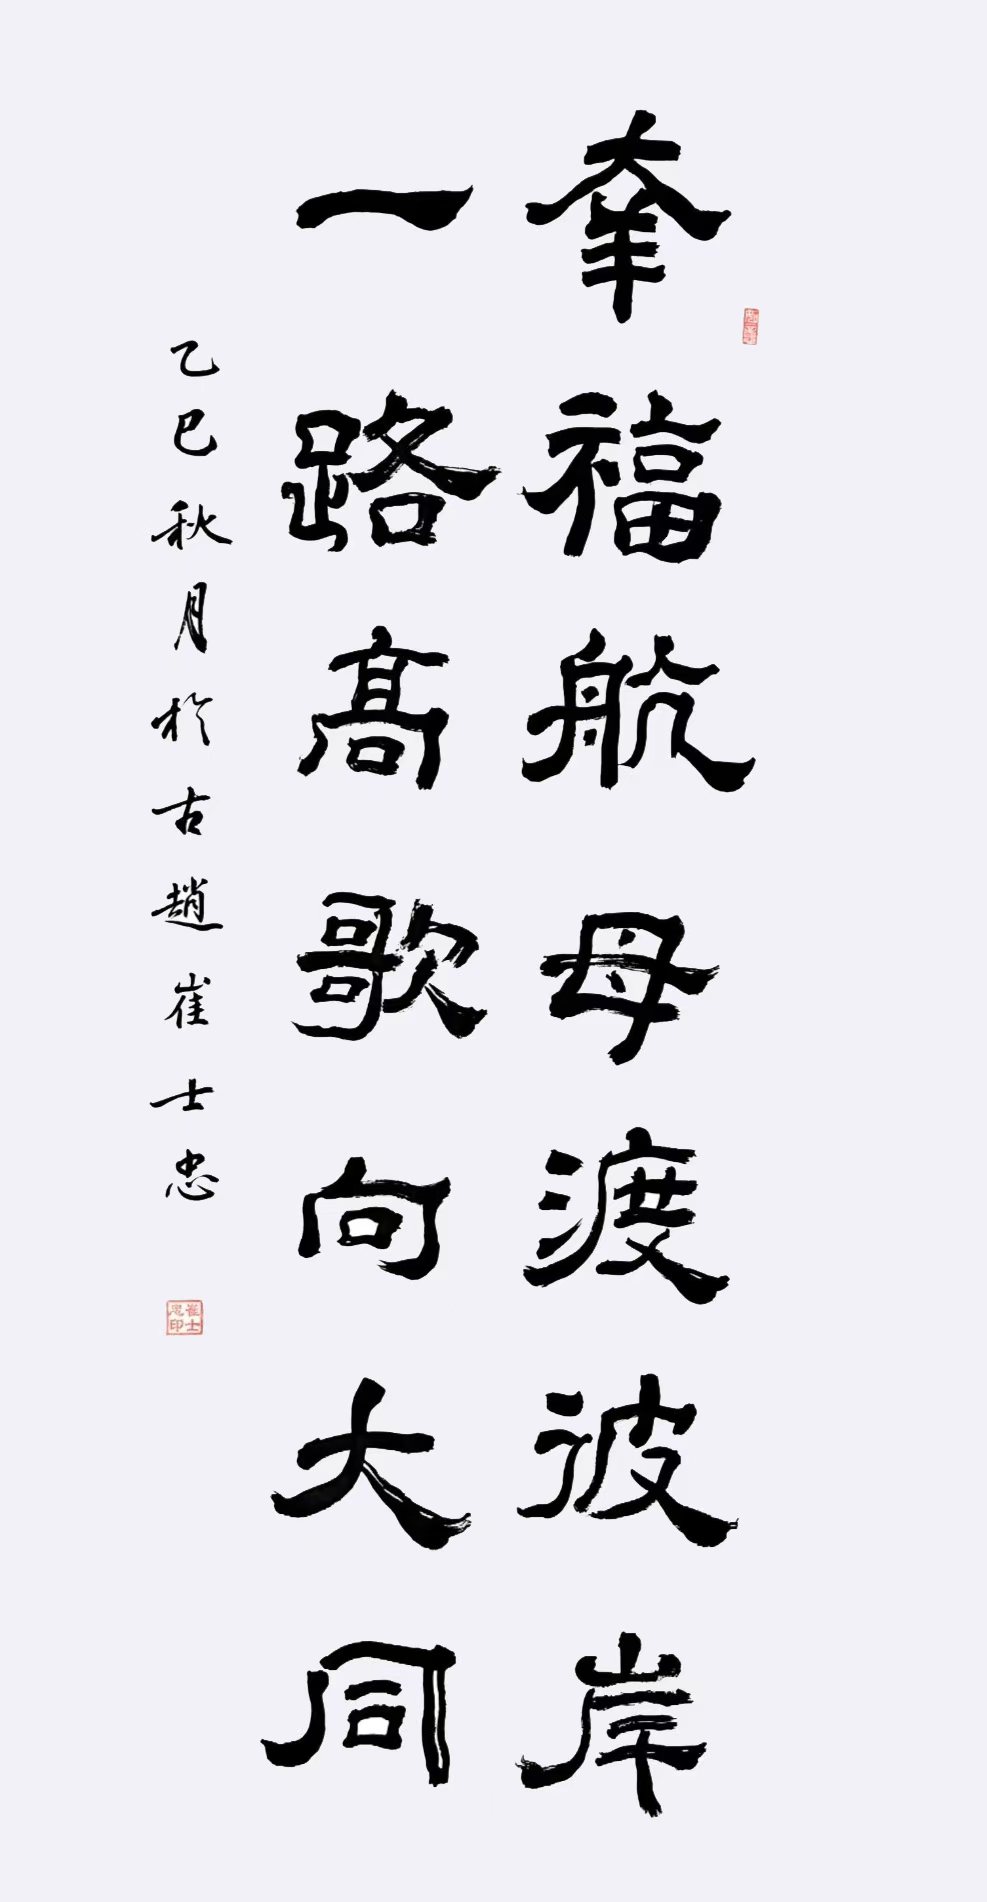 幸福航母渡彼岸
一路高歌向大同
乙巳秋月於古趙崔士忠
崔士忠印